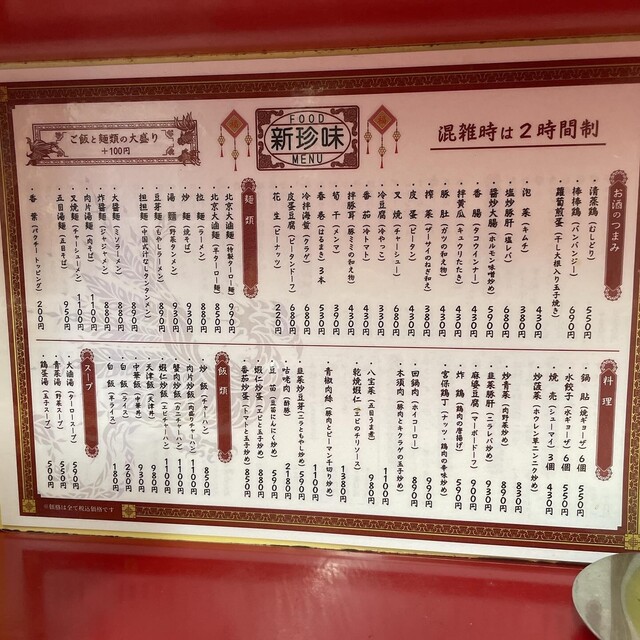 FOOD
新珍味
MENU
混雑時は2時間制
ご飯と麺類の大盛り
+100円
お酒のつまみ
清蒸鶏(むしどり) 550円
棒棒鶏(バンバンジー) 690円
蘿蔔煎蛋(干し大根入り玉子焼き)
430円
泡菜(キムチ) 380円
塩炒豚肝(塩レバ) 680円
醬炒大腸(ホルモン味噌炒め) 590円
香腸(タコウインナー) 430円
拌黄瓜(キュウリたたき) 380円
豚肚(ガツの和え物) 430円
榨菜(ザーサイのねぎ和え) 380円
皮蛋(ピータン) 430円
叉焼(チャーシュー) 680円
冷豆腐(冷やっこ) 380円
番茄(冷トマト) 430円
拌豚耳(豚ミミの和え物) 430円
筍干(メンマ) 390円
春巻(はるまき)3本 530円
冷拌海蜇(クラゲ) 680円
皮蛋豆腐(ピータンドーフ) 680円
花生(ピーナッツ) 220円
麺類
北京大滷麺(特製ターロー麺) 990円
北京大滷麺(半ターロー麺) 850円
拉麺(ラーメン) 880円
炒麺(焼そば) 850円
湯麺(野菜タンメン) 930円
豆芽麺(もやしラーメン) 890円
担担麺(中国式汁なしタンタンメン)
890円
大醬麺(ミソラーメン) 880円
炸醬麺(ジャジャメン) 880円
肉片湯麺(肉そば) 1100円
叉焼麺(チャーシューメン) 1100円
五目湯麺(五目そば) 950円
香菜(パクチートッピング) 200円
料理
鍋貼(焼ギョーザ)6個 550円
水餃子(水ギョーザ)6個 550円
焼売(シューマイ)3個 430円
炒菠菜(ホウレン草ニンニク炒め)
830円
炒青菜(肉野菜炒め) 890円
韮菜豚肝(ニラレバ炒め) 930円
麻婆豆腐(マーボードーフ) 900円
炸鶏(鶏肉の唐揚げ) 850円
宮保鶏丁(ナッツ・鶏肉の辛味炒め)
990円
回鍋肉(ホーコーロー) 890円
木須肉(豚肉とキクラゲの玉子炒め)
1100円
八宝菜(五目うま煮) 980円
乾焼蝦仁(エビのチリソース)
1380円
青椒肉絲(豚肉とピーマン千切り炒め)
1100円
韮菜炒豆芽(ニラともやし炒め) 590円
咕咾肉(酢豚) 2180円
豆苗(豆苗にんにく炒め) 590円
蝦仁炒蛋(エビと玉子炒め) 850円
番茄炒蛋(トマトと玉子炒め) 850円
飯類
炒飯(チャーハン) 850円
肉片炒飯(肉盛りチャーハン) 1100円
蟹肉炒飯(カニチャーハン) 1100円
蝦仁炒飯(エビチャーハン) 1100円
天津飯(天津丼) 930円
中華飯(中華丼) 930円
白飯(ライス) 260円
白飯(半ライス) 180円
スープ
大滷湯(ターロースープ) 590円
青菜湯(野菜スープ) 550円
鶏蛋湯(玉子スープ) 500円
※価格は全て税込価格です